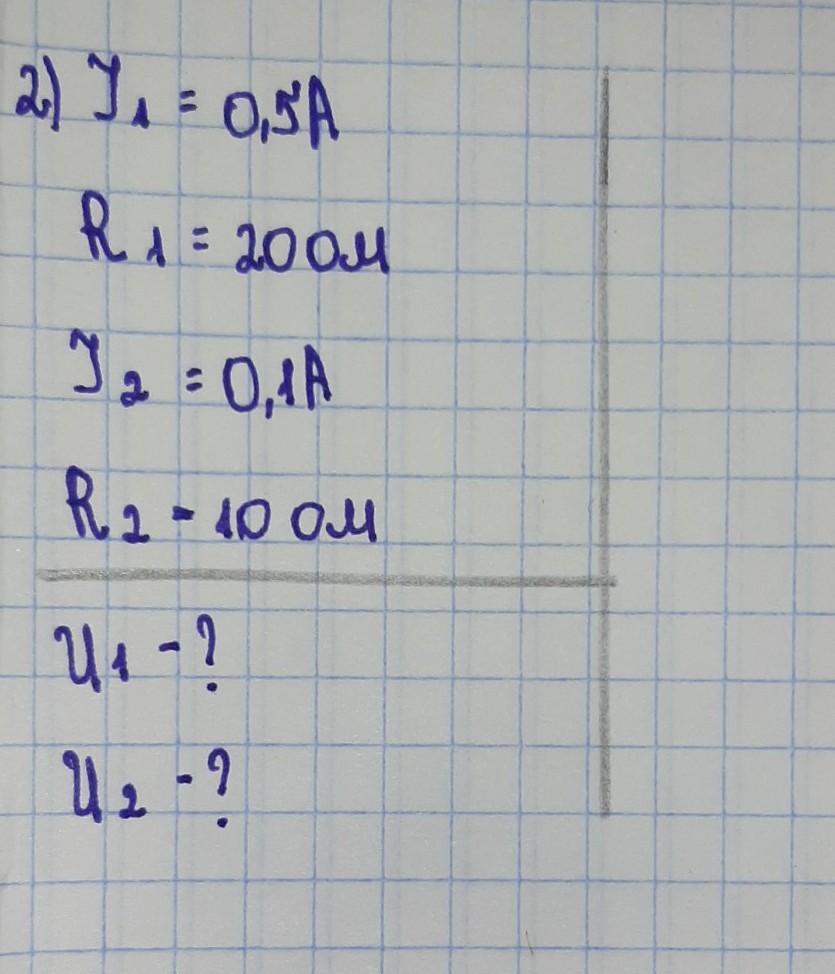 2) I₁ = 0,5А
R₁ = 20 Ом
I₂ = 0,1А
R₂ - 10 Ом
U₁ - ?
U₂ - ?